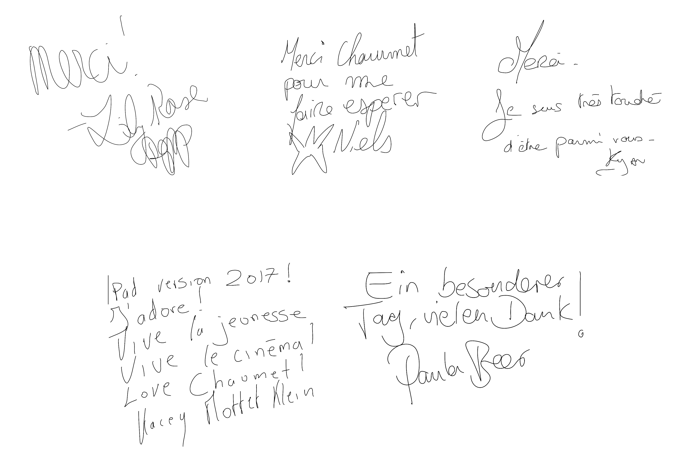 Merci!
Lily Rose
Depp
Merci Chaumet
pour me
faire esperer
Niels
Merci.
Je suis très touché
d'être parmi vous.
Kyan
IPad version 2017!
J'adore!
Vive la jeunesse
Vive le cinéma!
Love Chaumet!
Kacey Mottet Klein
Ein besonderer
Tag, vielen Dank!
Paula Beer